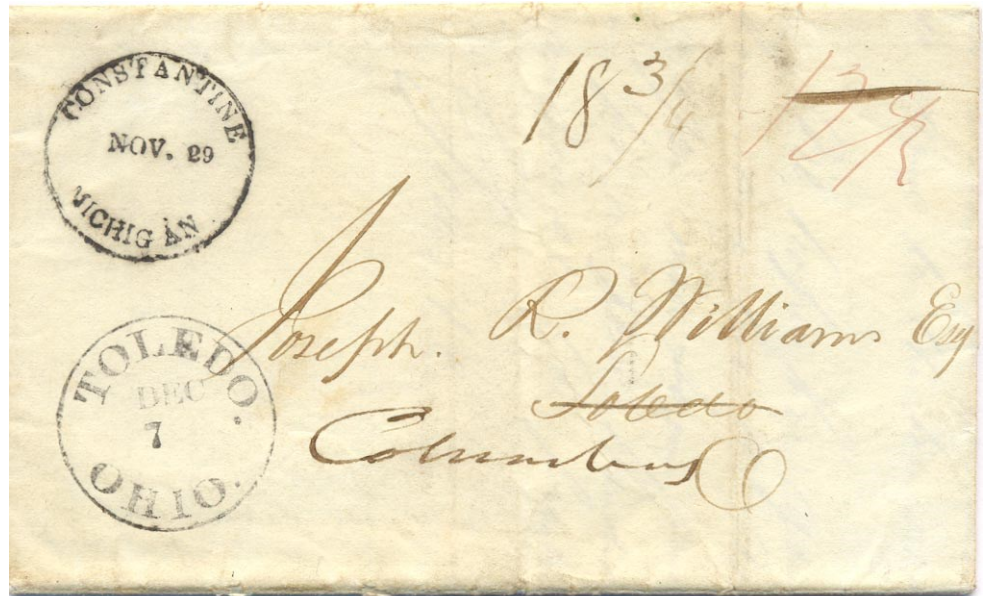 CONSTANTINE
NOV. 29
MICHIGAN
18 3/4
12 1/2
Joseph. R. Williams Esq
Toledo
Columbus O
TOLEDO.
DEC
7
OHIO.